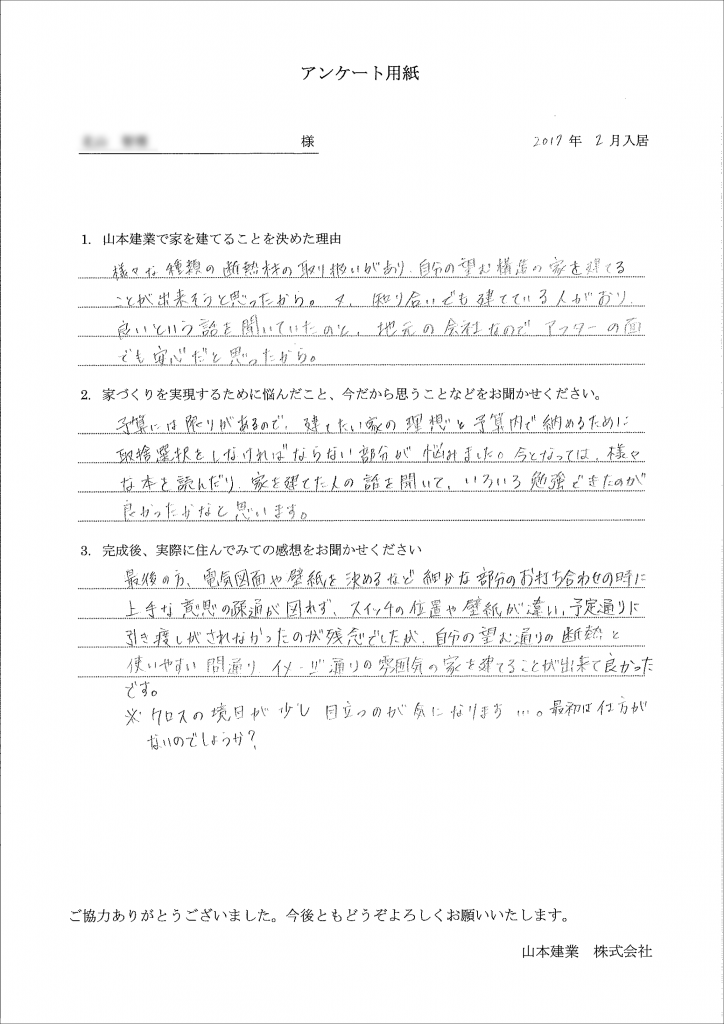 アンケート用紙
様
2017年 2月入居
1. 山本建業で家を建てることを決めた理由
様々な種類の断熱材の取り扱いがあり、自分の望む構造の家を建てる
ことが出来そうと思ったから。又、知り合いでも建てている人がおり、
良いという話を聞いていたのと、地元の会社なので アフターの面
でも安心だと思ったから。
2. 家づくりを実現するために悩んだこと、今だから思うことなどをお聞かせください。
予算には限りがあるので、建てたい家の理想と予算内で納めるために
取捨選択をしなければならない部分が悩みました。今となっては、様々
な本を読んだり、家を建てた人の話を聞いて、いろいろ勉強できたのが
良かったかなと思います。
3. 完成後、実際に住んでみての感想をお聞かせください
最後の方、電気図面や壁紙を決めるなど細かな部分のお打ち合わせの時に
上手な意思の疎通が図れず、スイッチの位置や壁紙が違い、予定通りに
引き渡しがされなかったのが残念でしたが、自分の望む通りの断熱と
使いやすい間通り、イメージ通りの雰囲気の家を建てることが出来て良かった
です。
※クロスの境目が少し目立つのが気になります…。最初は仕方が
ないのでしょうか?
ご協力ありがとうございました。今後ともどうぞよろしくお願いいたします。
山本建業 株式会社